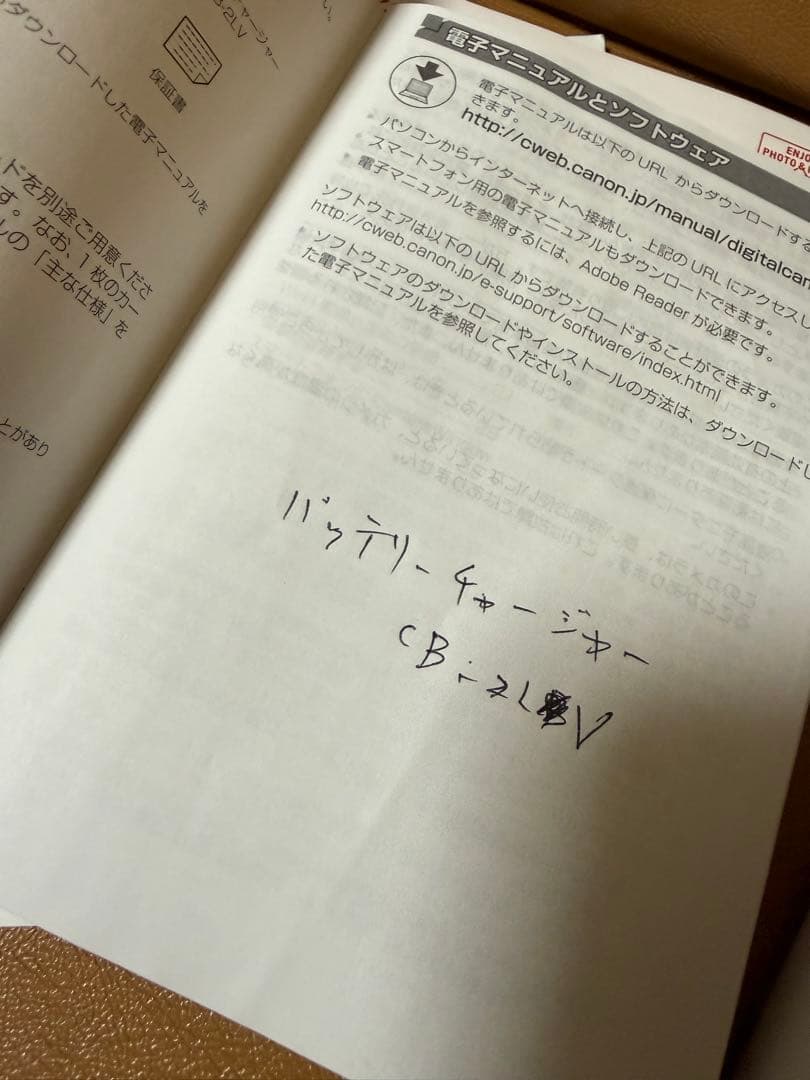 チャージャー
B-2LV
保証書
ダウンロードした電子マニュアルを
ドを別途ご用意くださ
す。なお、1枚のカー
ルの「主な仕様」を
とがあり
電子マニュアルとソフトウェア
ENJO
PHOTO
電子マニュアルは以下の URL からダウンロードする
きます。
http://cweb.canon.jp/manual/digitalcam
パソコンからインターネットへ接続し、上記の URL にアクセスし
スマートフォン用の電子マニュアルもダウンロードできます。
電子マニュアルを参照するには、Adobe Reader が必要です。
ソフトウェアは以下の URL からダウンロードすることができます。
http://cweb.canon.jp/e-support/software/index.html
ソフトウェアのダウンロードやインストールの方法は、ダウンロードし
た電子マニュアルを参照してください。
バッテリーチャージャー
CB-2LV